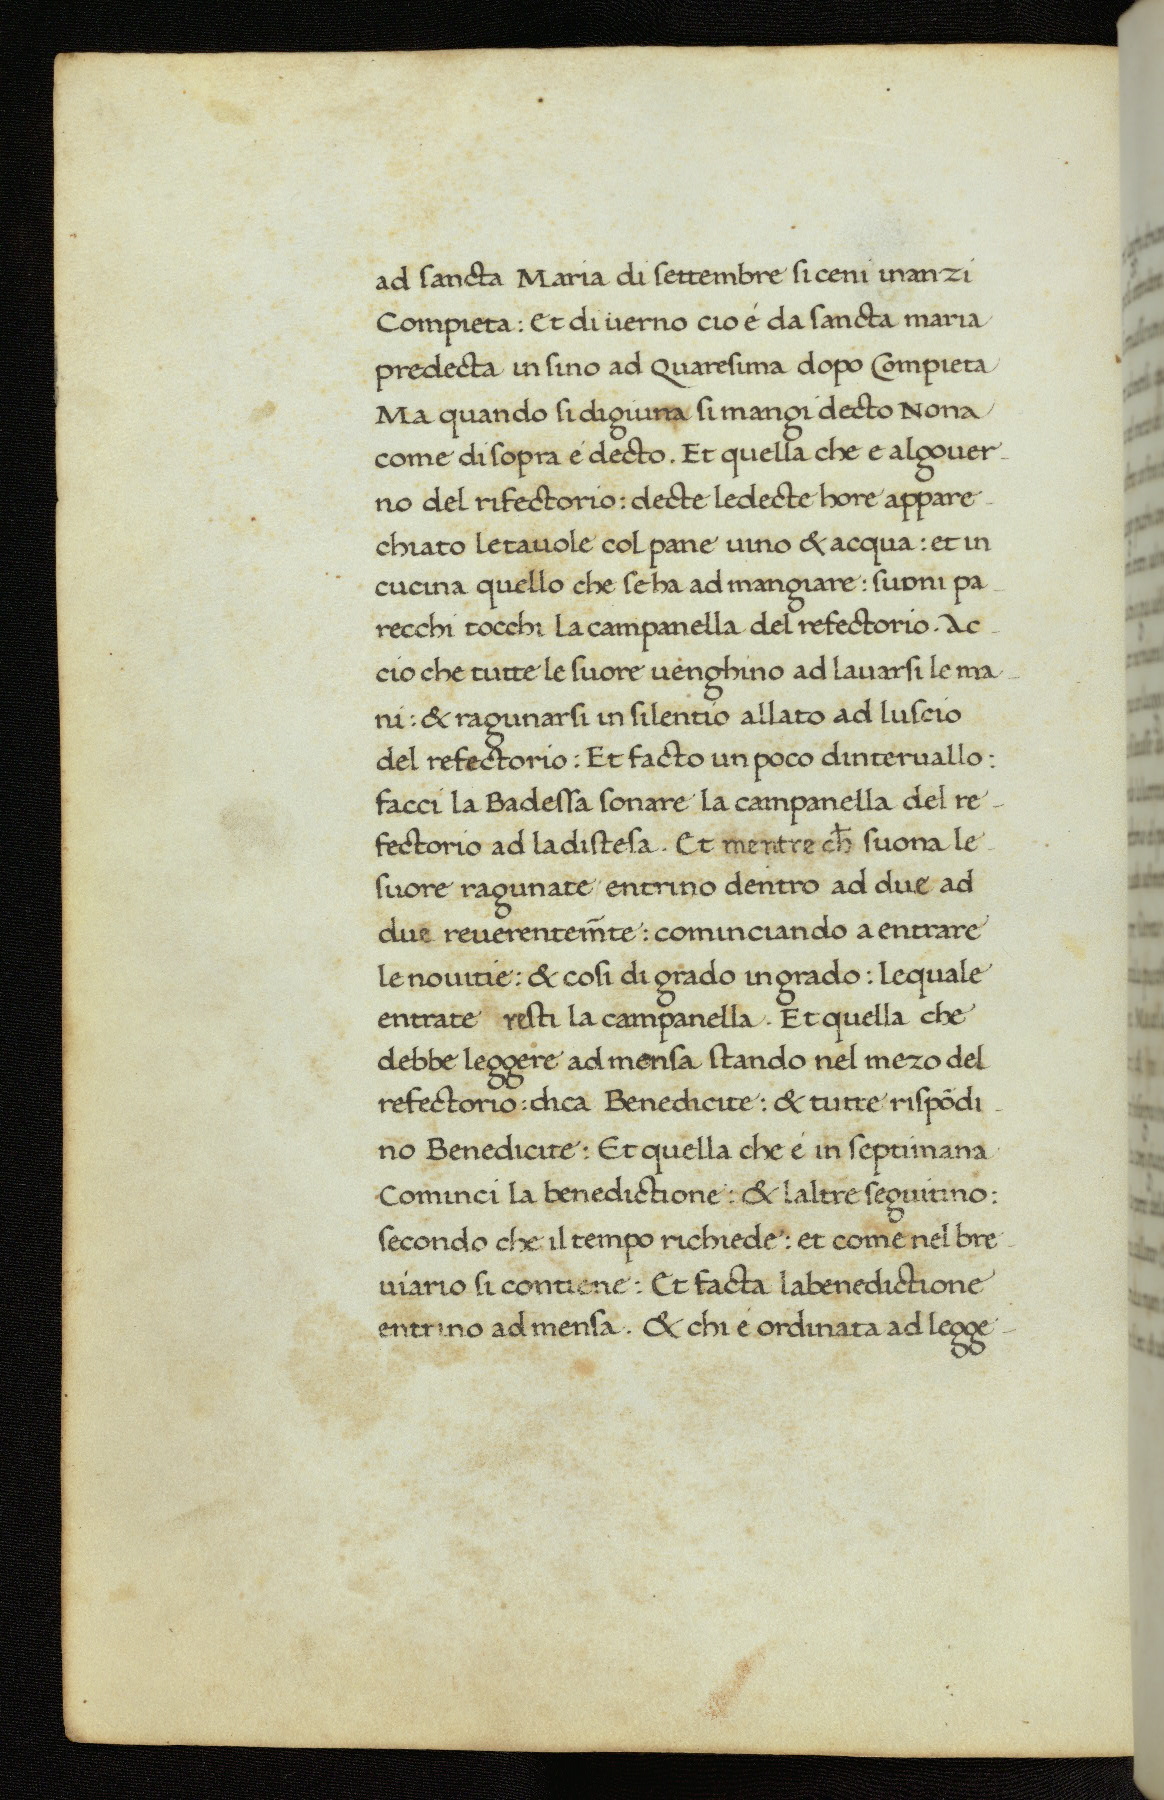 ad sancta Maria di settembre si ceni inanzi
Compieta: Et di uerno cio é da sancta maria
predecta in sino ad Quaresima dopo Compieta
Ma quando si digiuna si mangi decto Nona
come di sopra é decto. Et quella che e algouer-
no del rifectorio: decte ledecte hore appare-
chiato letauole col pane uino & acqua: et in
cucina quello che se ha ad mangiare: suoni pa-
recchi tocchi la campanella del refectorio. Ac-
cio che tutte le suore uenghino ad lauarsi le ma-
ni: & ragunarsi in silentio allato ad luscio
del refectorio: Et facto un poco dinteruallo:
facci la Badessa sonare la campanella del re-
fectorio ad la distesa. Et mentre cħ suona le
suore ragunate entrino dentro ad due ad
due reuerentem̄te: cominciando a entrare
le nouitie: & cosi di grado in grado: lequale
entrate resti la campanella. Et quella che
debbe leggere ad mensa stando nel mezo del
refectorio: dica Benedicite: & tutte rispōdi-
no Benedicite: Et quella che é in septimana
Cominci la benedictione: & laltre seguitino:
secondo che il tempo richiede: et come nel bre-
uiario si contiene: Et facta labenedictione
entrino ad mensa. & chi é ordinata ad legge-